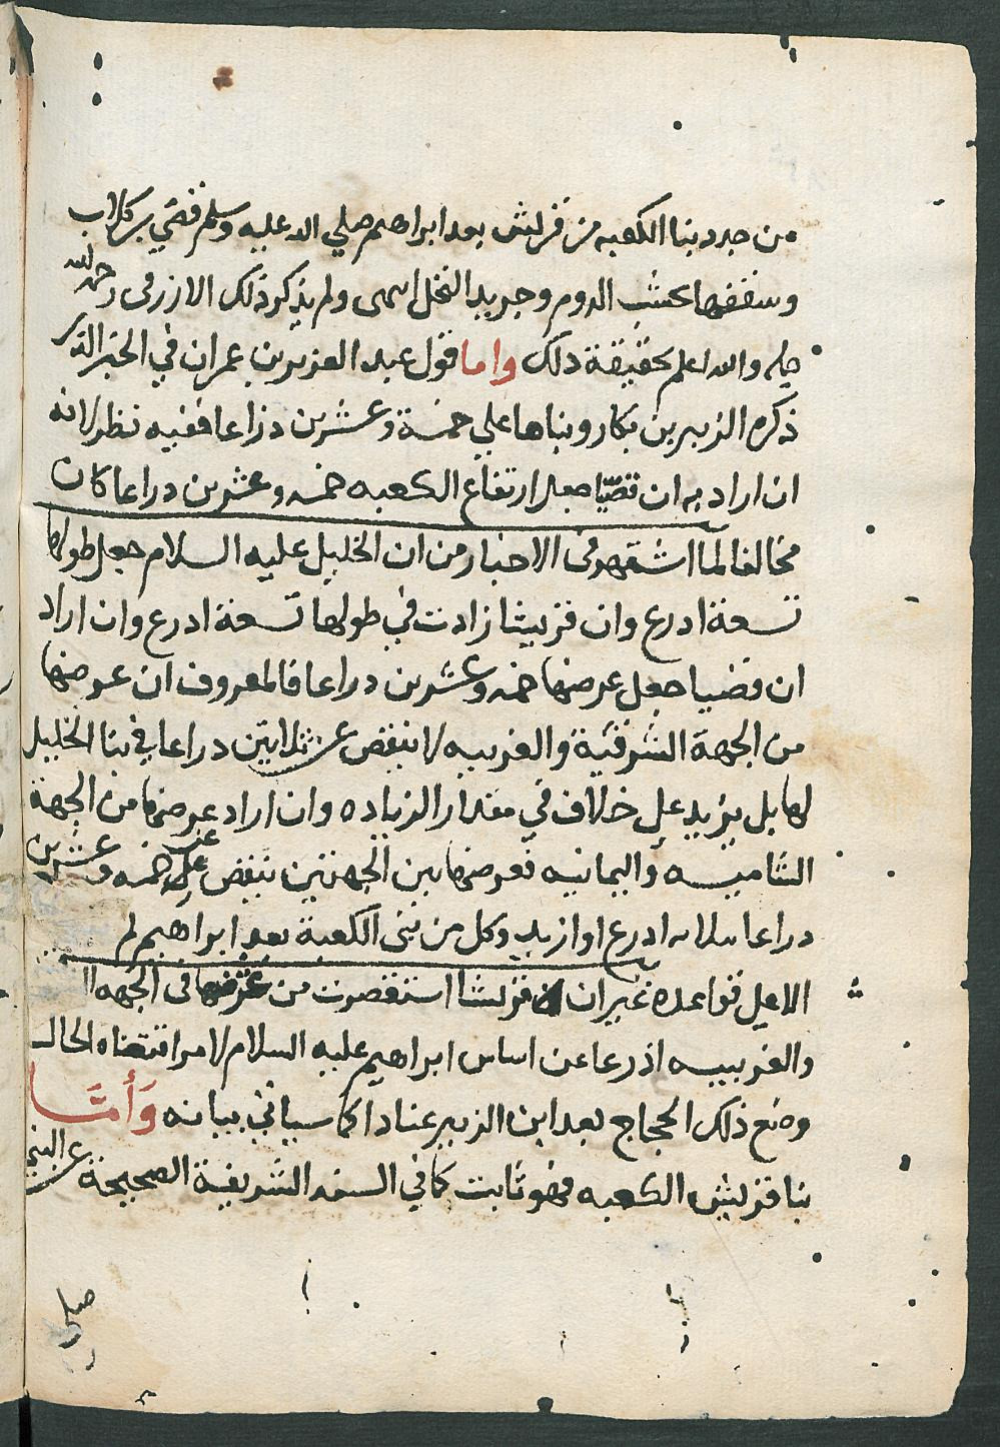 من جدد بنا الكعبه من قريش بعد ابراهيم صلي الله عليه وسلم قصي بن كلاب
وسقفها بخشب الدوم وجريد النخل انتهى ولم يذكر ذلك الازرقى رحمه الله
والله اعلم بحقيقة ذلك واما قول عبد العزيز بن عمران في الخبر الذي
ذكره الزبير بن بكار وبناها علي خمسة وعشرين ذراعا ففيه نظر لانه
ان اراد به ان قصيّا جعل ارتفاع الكعبه خمسه وعشرين دراعا كان
مخالفا لما اشتهر فى الاخبار من ان الخليل عليه السلام جعل طولها
تسعة ادرع وان قريشا زادت في طولها تسعة ادرع وان اراد
ان قصيا جعل عرضها خمسه وعشرين دراعا فالمعروف ان عرضها
من الجهة الشرقية والغربيه لا ينقص عن ثلاثين دراعا في بنا الخليل
لها بل يزيد على خلاف في مقدار الزياده وان اراد عرضها من الجهة
الشاميه واليمانيه فعرضها بين الجهتين ينقص عن خمسه وعشرين
دراعا ثلاثه ادرع او ازيد وكل من بنى الكعبة بعد ابراهيم لم
الا على قواعده غير ان قريشا استقصرت من عرضها فى الجهه
والغربييه اذرعا عن اساس ابراهيم عليه السلام لامر اقتضاه الحال
وصنع ذلك الحجاج بعد ابن الزبير عنادا كما سياتي بيانه وَأَمَّا
بنا قريش الكعبه فهو ثابت كما في السنه الشريفة الصحيحة عن النبي
صلى